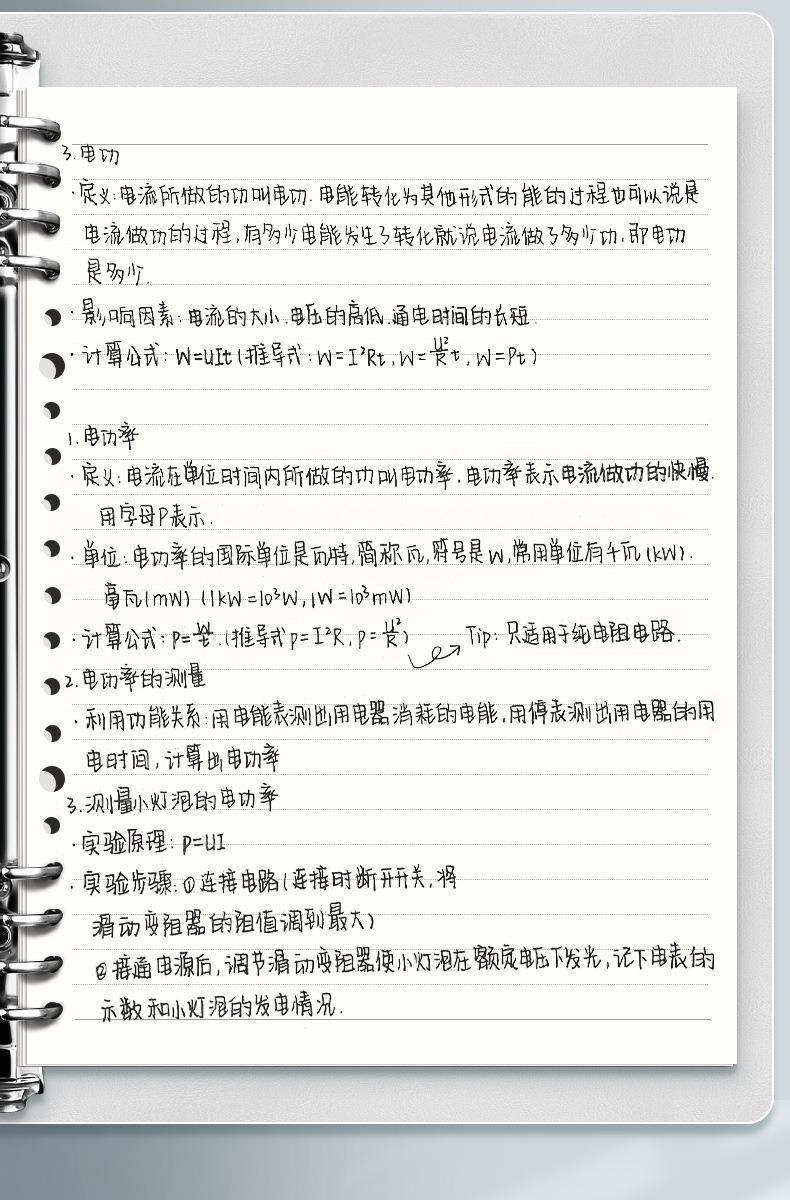 3.电功
·定义:电流所做的功叫电功.电能转化为其他形式的能的过程也可以说是
电流做功的过程,有多少电能发生了转化就说电流做了多少功,即电功
是多少.
·影响因素:电流的大小.电压的高低.通电时间的长短.
·计算公式:W=UIt(推导式:W=I²Rt,W=U²/R t,W=Pt)
1.电功率
·定义:电流在单位时间内所做的功叫电功率.电功率表示电流做功的快慢.
用字母P表示.
·单位:电功率的国际单位是瓦特,简称瓦,符号是W,常用单位有千瓦(kW).
毫瓦(mW)(1kW=10³W,1W=10³mW)
·计算公式:P=W/t.(推导式P=I²R,P=U²/R) Tip:只适用于纯电阻电路.
2.电功率的测量
·利用功能关系:用电能表测出用电器消耗的电能,用停表测出用电器的用
电时间,计算出电功率
3.测量小灯泡的电功率
·实验原理:P=UI
·实验步骤:①连接电路(连接时断开开关,将
滑动变阻器的阻值调到最大)
②接通电源后,调节滑动变阻器使小灯泡在额定电压下发光,记下电表的
示数和小灯泡的发电情况.